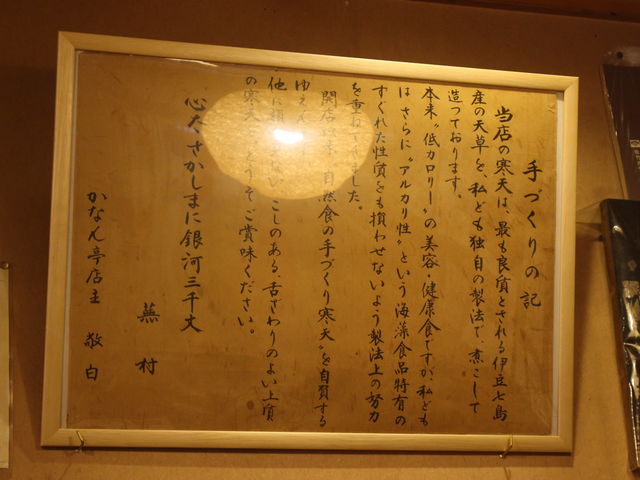 手づくりの記
当店の寒天は、最も良質とされる伊豆七島
産の天草を、私ども独自の製法で、煮こして
造っております。
本来〝低カロリー〟の美容・健康食ですが、私ども
はさらに〝アルカリ性〟という海藻食品特有の
すぐれた性質をも損わせないよう製法上の努力
を重ねてきました。
開店以来〝自然食の手づくり寒天〟を自負する
ゆえん
他に類 ない、こしのある、舌ざわりのよい上質
の寒天 どうぞご賞味ください。
心太さかしまに銀河三千丈
蕪村
かなん亭店主 敬白